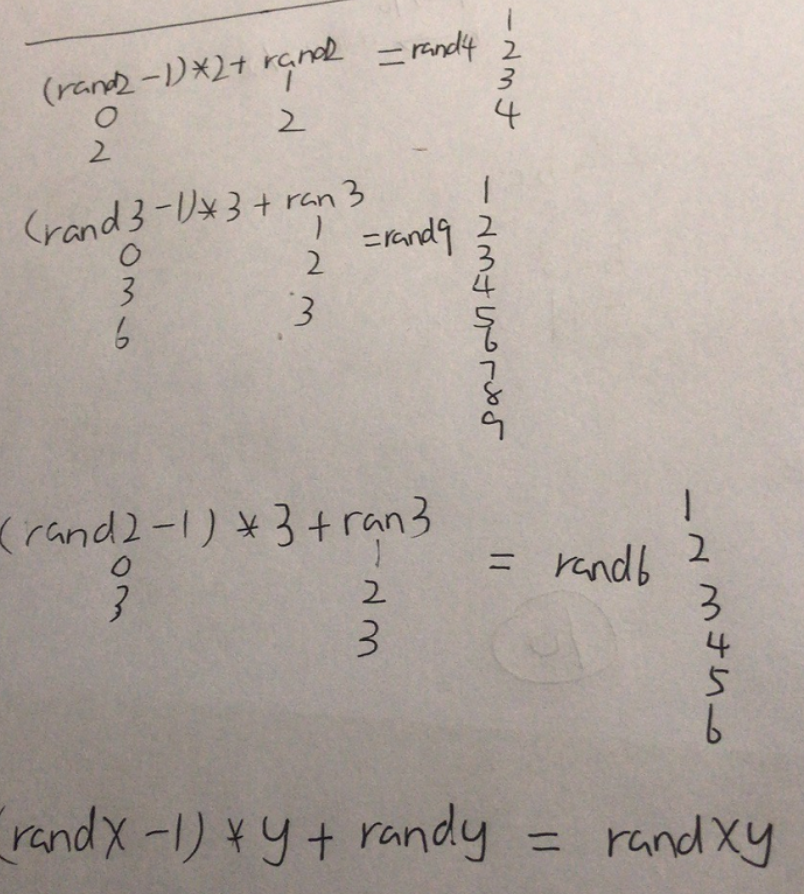 (rand2-1)*2+ rand2 =rand4 1
0 1 2
2 2 3
4
(rand3-1)*3+ran3 1
0 1 =rand9 2
3 2 3
6 3 4
5
6
7
8
9
(rand2-1)*3+ran3 1
0 1 = rand6 2
3 2 3
3 4
5
6
(randX-1)*y+randy = randXy